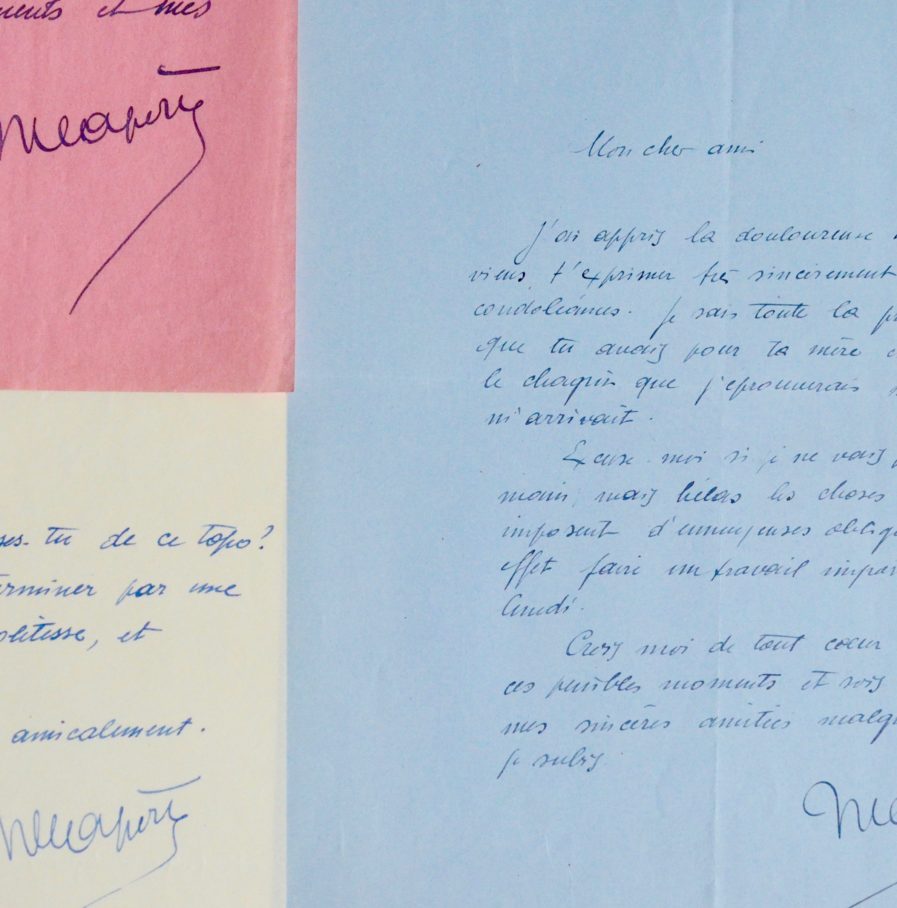 et mes
ses-tu de ce topo?
terminer par une
politesse, et
amicalement.
Mon cher ami
J'ai appris la douloureuse
viens t'exprimer très sincèrement
condoléances. Je sais toute la
que tu avais pour ta mère
le chagrin que j'éprouverais
m'arrivait.
Excuse moi si je ne vais
main, mais hélas les choses
imposent d'ennuyeuses
effet faire un travail
lundi.
Crois moi de tout coeur
ces pénibles moments et sois
mes sincères amitiés
je subis.